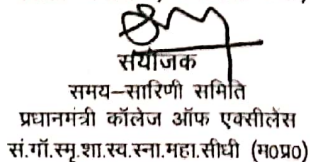 संयोजक
समय–सारिणी समिति
प्रधानमंत्री कॉलेज ऑफ एक्सीलेंस
सं.गॉ.स्मृ.शा.स्व.स्ना.महा.सीधी (म०प्र०)